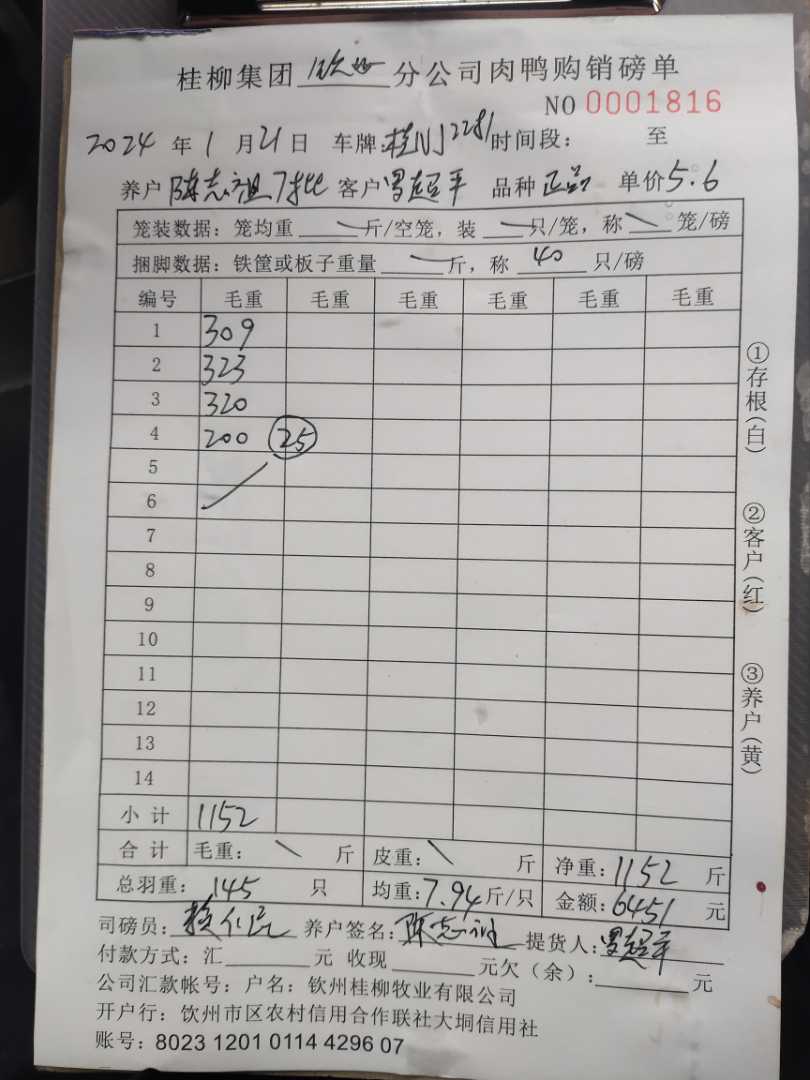 桂柳集团钦州分公司肉鸭购销磅单
NO 0001816
2024年1月21日 车牌:桂N J2281 时间段: 至
养户 陈志祖7批 客户 罗超平 品种 正品 单价 5.6
笼装数据: 笼均重 斤/空笼, 装 只/笼, 称 笼/磅
捆脚数据: 铁筐或板子重量 斤, 称 40 只/磅
编号 毛重 毛重 毛重 毛重 毛重 毛重
1 309
2 323
3 320
4 200 25
5
6
7
8
9
10
11
12
13
14
小计 1152
合计 毛重: 斤 皮重: 斤 净重: 1152 斤
总羽重: 145 只 均重: 7.94 斤/只 金额: 6451 元
司磅员: 养户签名: 陈志祖 提货人: 罗超平
付款方式: 汇 元 收现 元欠(余): 元
公司汇款帐号: 户名: 钦州桂柳牧业有限公司
开户行: 饮州市区农村信用合作联社大垌信用社
账号: 8023 1201 0114 4296 07
①存根(白)
②客户(红)
③养户(黄)